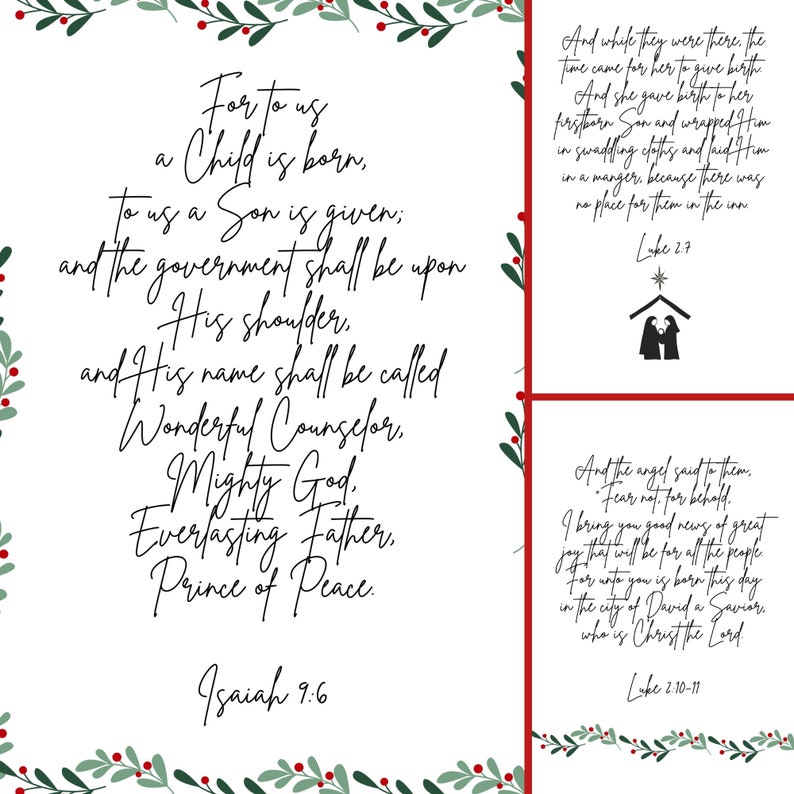 For to us
a Child is born,
to us a Son is given;
and the government shall be upon
His shoulder,
and His name shall be called
Wonderful Counselor,
Mighty God,
Everlasting Father,
Prince of Peace.
Isaiah 9:6
And while they were there, the
time came for her to give birth.
And she gave birth to her
firstborn Son and wrapped Him
in swaddling cloths and laid Him
in a manger, because there was
no place for them in the inn.
Luke 2:7
And the angel said to them,
"Fear not, for behold,
I bring you good news of great
joy that will be for all the people.
For unto you is born this day
in the city of David a Savior,
who is Christ the Lord.
Luke 2:10-11